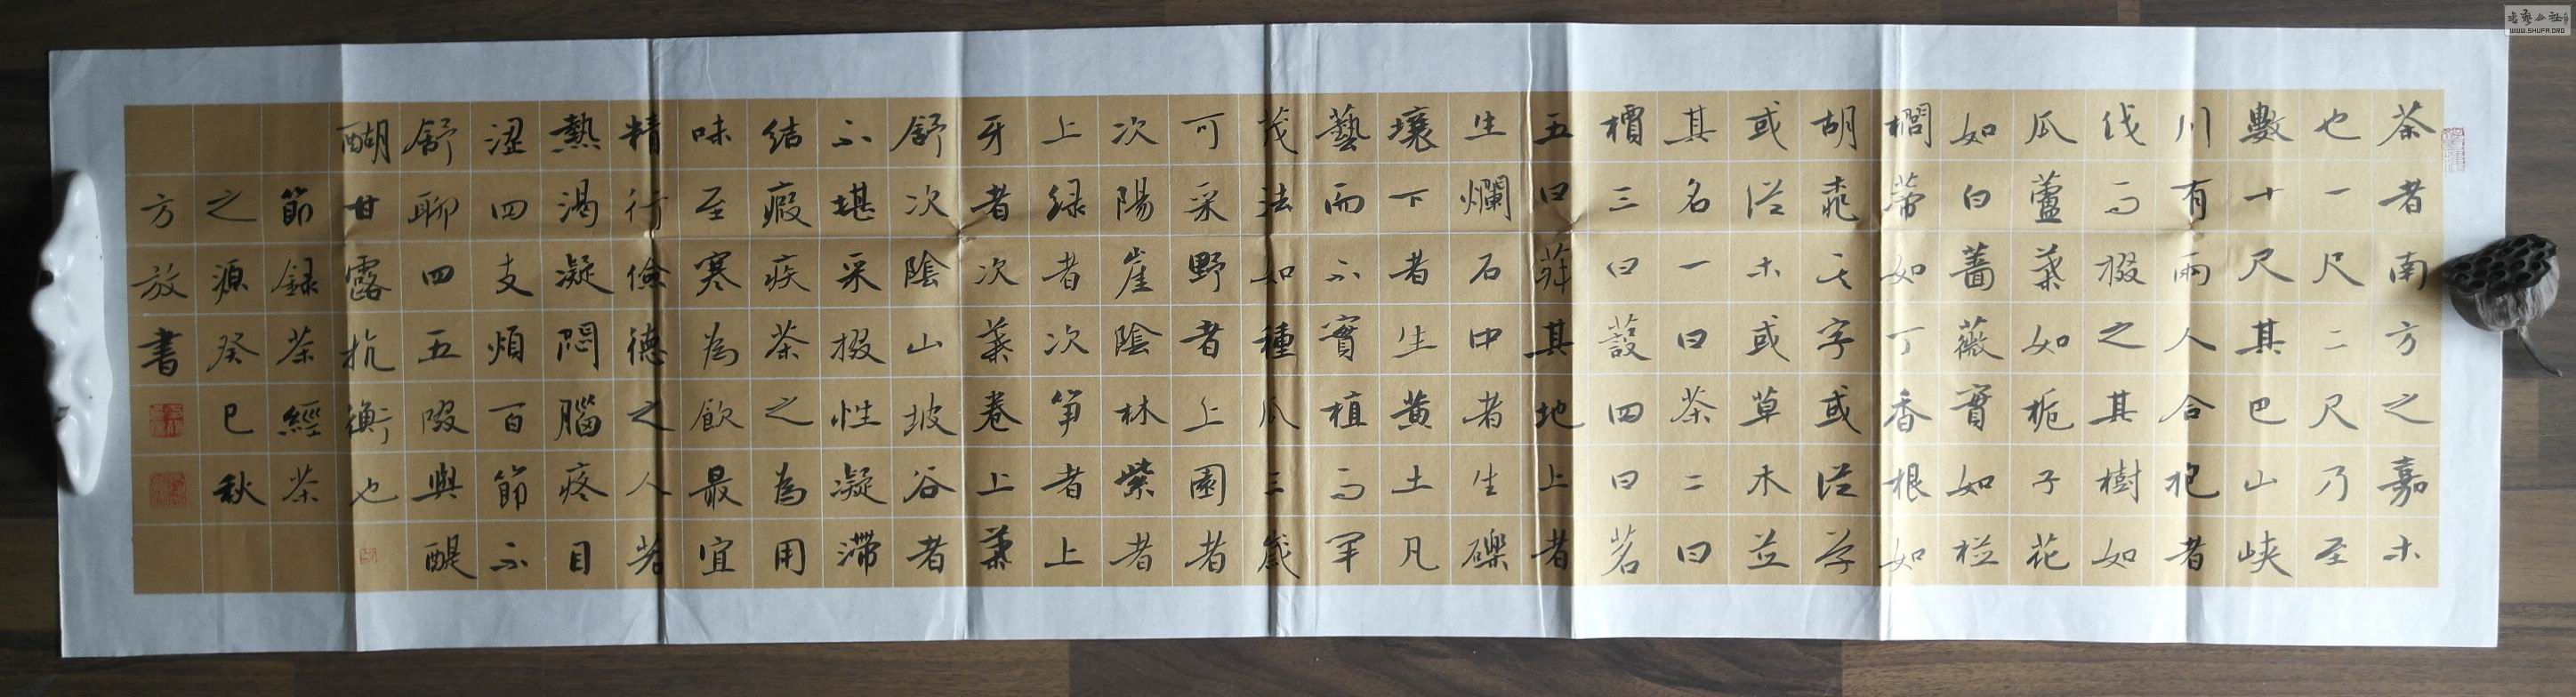 茶者南方之嘉木
也一尺二尺乃至
數十尺其巴山峽
川有兩人合抱者
伐而掇之其樹如
瓜蘆葉如梔子花
如白薔薇實如栟
櫚蒂如丁香根如
胡桃其字或從草
或從木或草木並
其名一曰茶二曰
檟三曰蔎四曰茗
五曰荈其地上者
生爛石中者生礫
壤下者生黃土凡
藝而不實植而罕
茂法如種瓜三歲
可采野者上園者
次陽崖陰林紫者
上緑者次筍者上
牙者次葉卷上葉
舒次陰山坡谷者
不堪采掇性凝滯
結瘕疾茶之為用
味至寒為飲最宜
精行儉德之人若
熱渴凝悶腦疼目
澀四支煩百節不
舒聊四五啜與醍
醐甘露抗衡也
節録茶經茶
之源癸巳秋
方放書
WWW.SHUFA.ORG